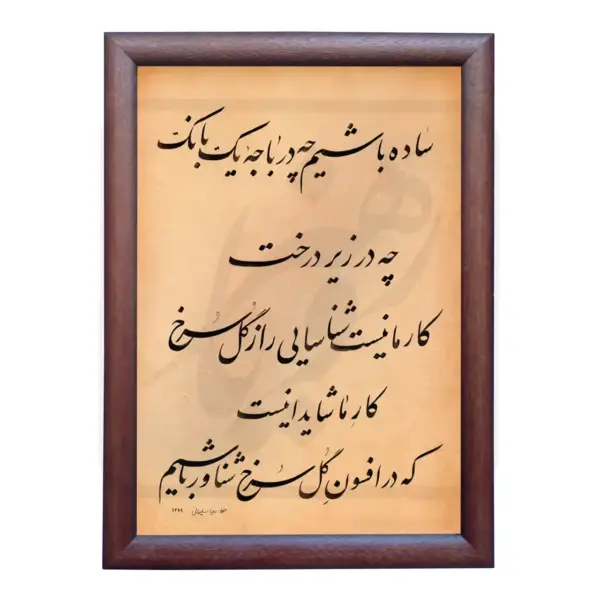 ساده باشیم چه در باجهٔ یک بانک
چه در زیر درخت
کار ما نیست شناسایی راز گل سرخ
کارِ ما شاید اینست
که در افسون گُلِ سرخ شناور باشیم